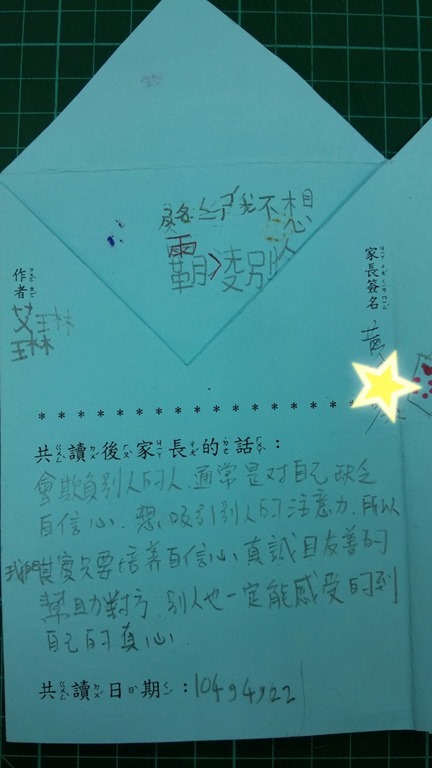 我不想
霸凌別人
家長簽名
黃
作者
艾琳
* * * * * * * * * * * * * * * * *
共讀後家長的話：
會欺負別人的人，通常是對自己缺乏
自信心，想吸引別人的注意力，所以
我們其實只要培養自信心，真誠且友善的
幫助對方，別人也一定能感受的到
自己的真心.
共讀日期：10494922